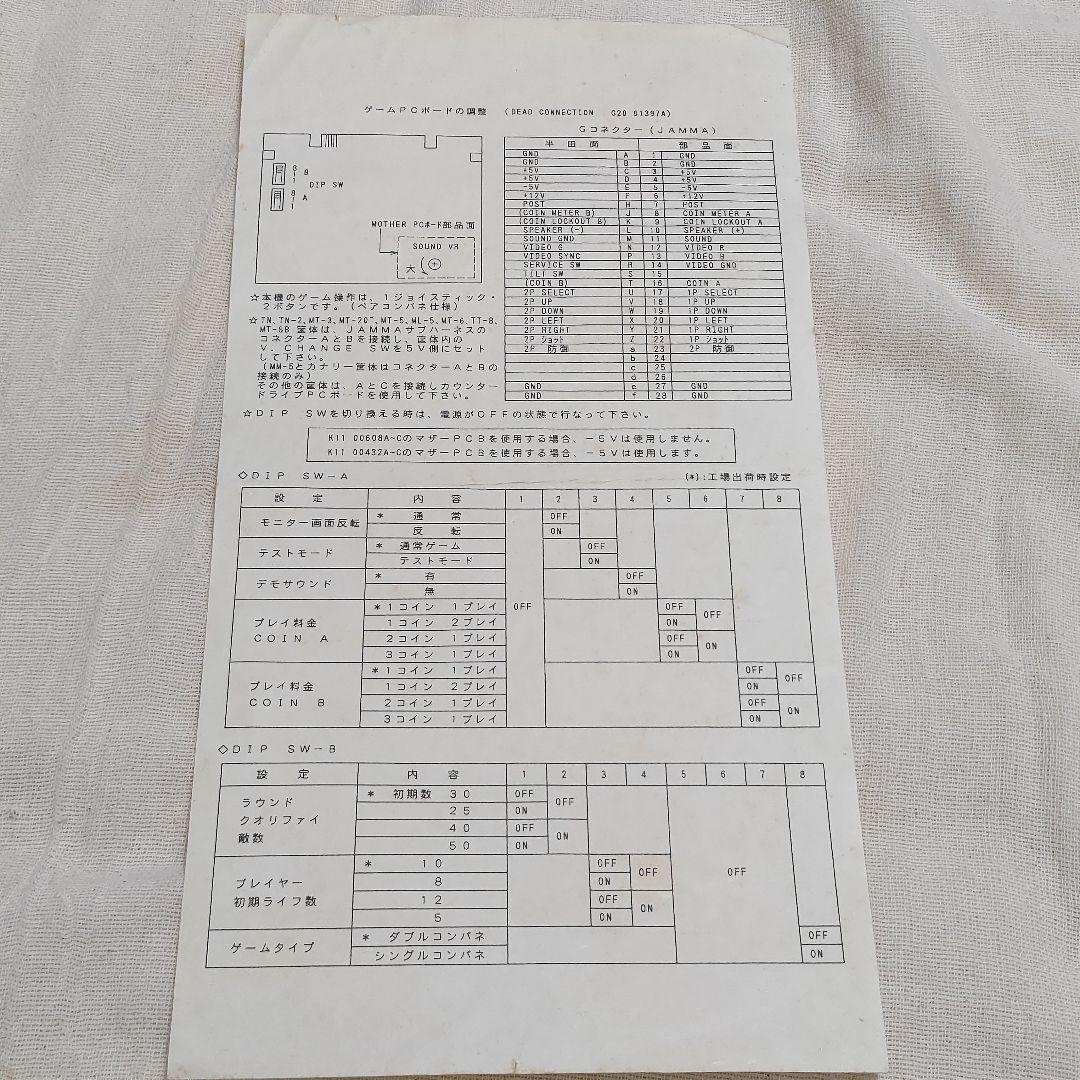 ゲームPCボードの調整 (DEAD CONNECTION G20 01397A)
8
1
B
DIP SW
8
1
A
MOTHER PCボード部品面
SOUND VR
大
Gコネクター(JAMMA)
半田面 部品面
GND A 1 GND
GND B 2 GND
+5V C 3 +5V
+5V D 4 +5V
-5V E 5 -5V
+12V F 6 +12V
POST H 7 POST
(COIN METER B) J 8 COIN METER A
(COIN LOCKOUT B) K 9 COIN LOCKOUT A
SPEAKER (-) L 10 SPEAKER (+)
SOUND GND M 11 SOUND
VIDEO G N 12 VIDEO R
VIDEO SYNC P 13 VIDEO B
SERVICE SW R 14 VIDEO GND
TILT SW S 15
(COIN B) T 16 COIN A
2P SELECT U 17 1P SELECT
2P UP V 18 1P UP
2P DOWN W 19 1P DOWN
2P LEFT X 20 1P LEFT
2P RIGHT Y 21 1P RIGHT
2P ショット Z 22 1P ショット
2P 防御 a 23 2P 防御
b 24
c 25
d 26
GND e 27 GND
GND f 28 GND
☆本機のゲーム操作は、1ジョイスティック・
2ボタンです。(ペアコンパネ仕様)
☆TN,TN-2,MT-3,MT-20",MT-5,ML-5,MT-6,TT-8,
MT-6B 筐体は、JAMMAサブハーネスの
コネクターAとBを接続し、筐体内の
V.CHANGE SWを5V側にセット
して下さい。
(MM-5とカナリー筐体はコネクターAとBの
接続のみ)
その他の筐体は、AとCを接続しカウンター
ドライブPCボードを使用して下さい。
☆DIP SWを切り換える時は、電源がOFFの状態で行なって下さい。
K11 00608A~CのマザーPCBを使用する場合、-5Vは使用しません。
K11 00432A~CのマザーPCBを使用する場合、-5Vは使用します。
◇DIP SW-A (*):工場出荷時設定
設定 内容 1 2 3 4 5 6 7 8
モニター画面反転 * 通常 OFF
反転 ON
テストモード * 通常ゲーム OFF
テストモード ON
デモサウンド * 有 OFF
無 ON
プレイ料金
COIN A
* 1コイン 1プレイ OFF OFF OFF
1コイン 2プレイ ON
2コイン 1プレイ OFF ON
3コイン 1プレイ ON
プレイ料金
COIN B
* 1コイン 1プレイ OFF OFF
1コイン 2プレイ ON
2コイン 1プレイ OFF ON
3コイン 1プレイ ON
◇DIP SW-B
設定 内容 1 2 3 4 5 6 7 8
ラウンド
クオリファイ
敵数
* 初期数 30 OFF OFF
25 ON
40 OFF ON
50 ON
プレイヤー
初期ライフ数
* 10 OFF OFF OFF
8 ON
12 OFF ON
5 ON
ゲームタイプ * ダブルコンパネ OFF
シングルコンパネ ON